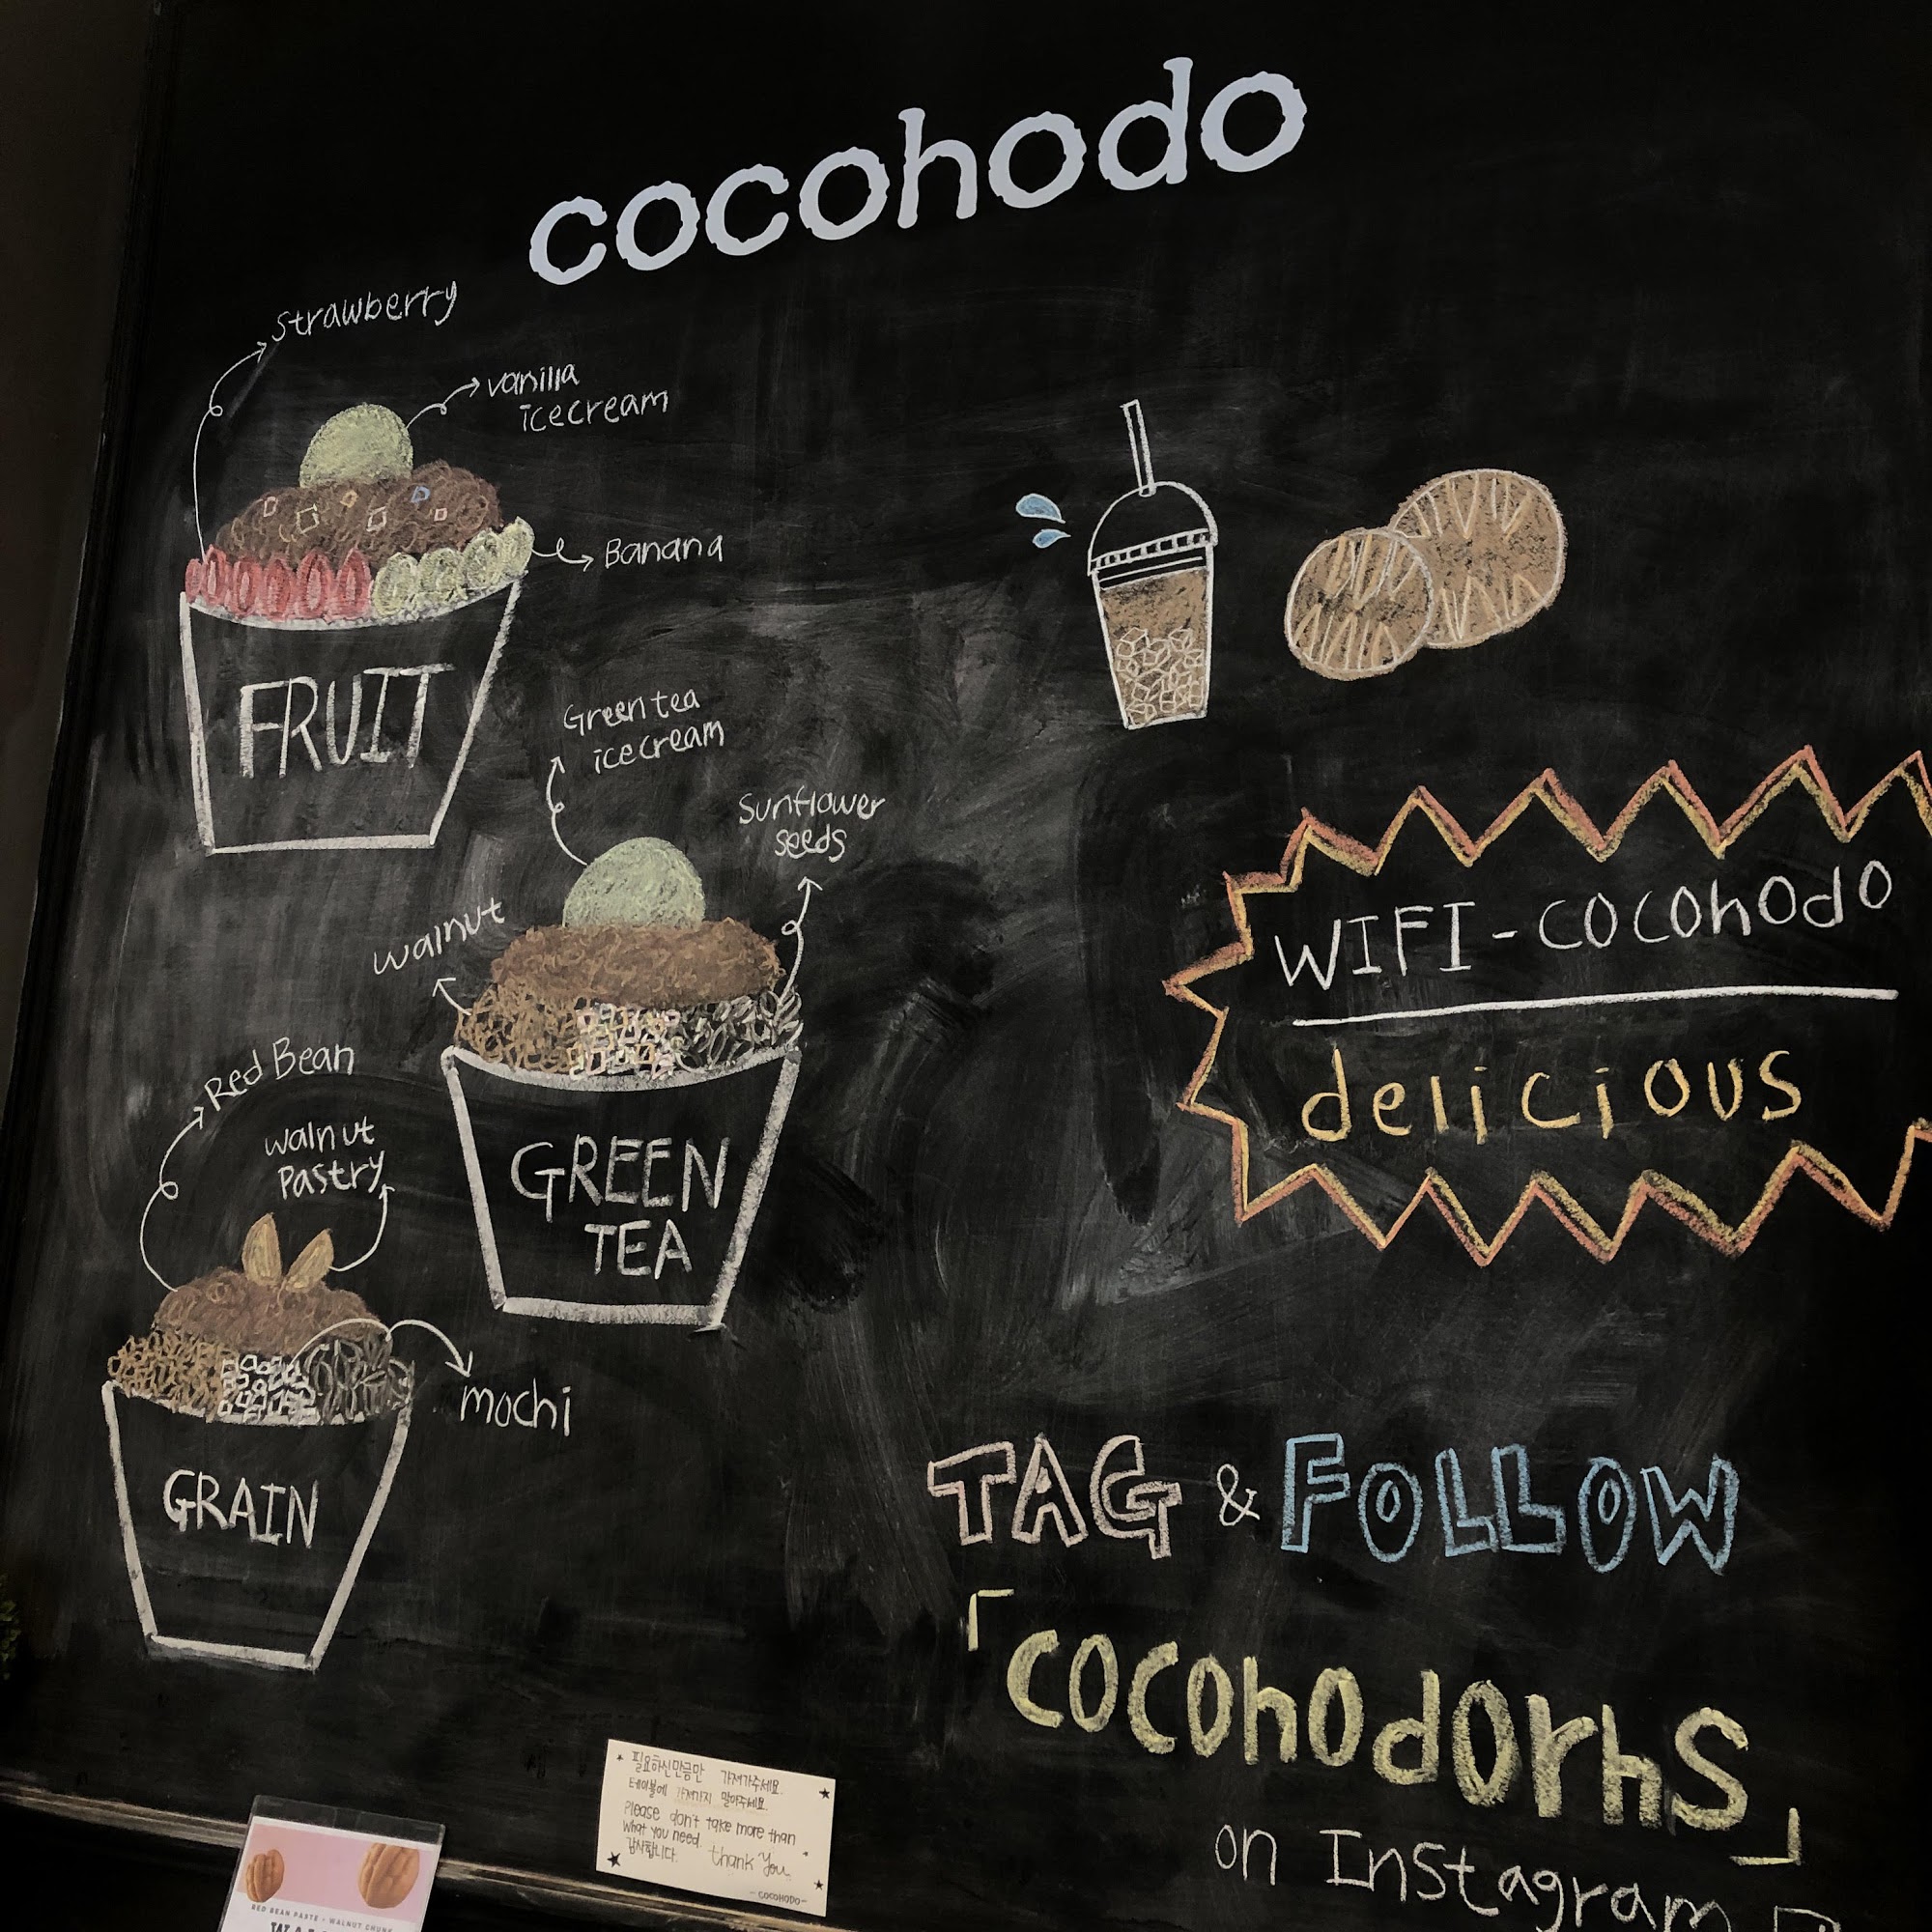 cocohodo
strawberry
vanilla
icecream
Banana
FRUIT
Green tea
icecream
Sunflower
seeds
walnut
GREEN
TEA
Red Bean
walnut
Pastry
mochi
GRAIN
WIFI - cocohodo
delicious
TAG & FOLLOW
「cocohodorhs」
on Instagram
필요하신만큼만 가져가주세요.
테이블에 가져가지 말아주세요.
Please don't take more than
what you need.
감사합니다. thank you
- COCOHODO -
RED BEAN PASTE + WALNUT CHUNK